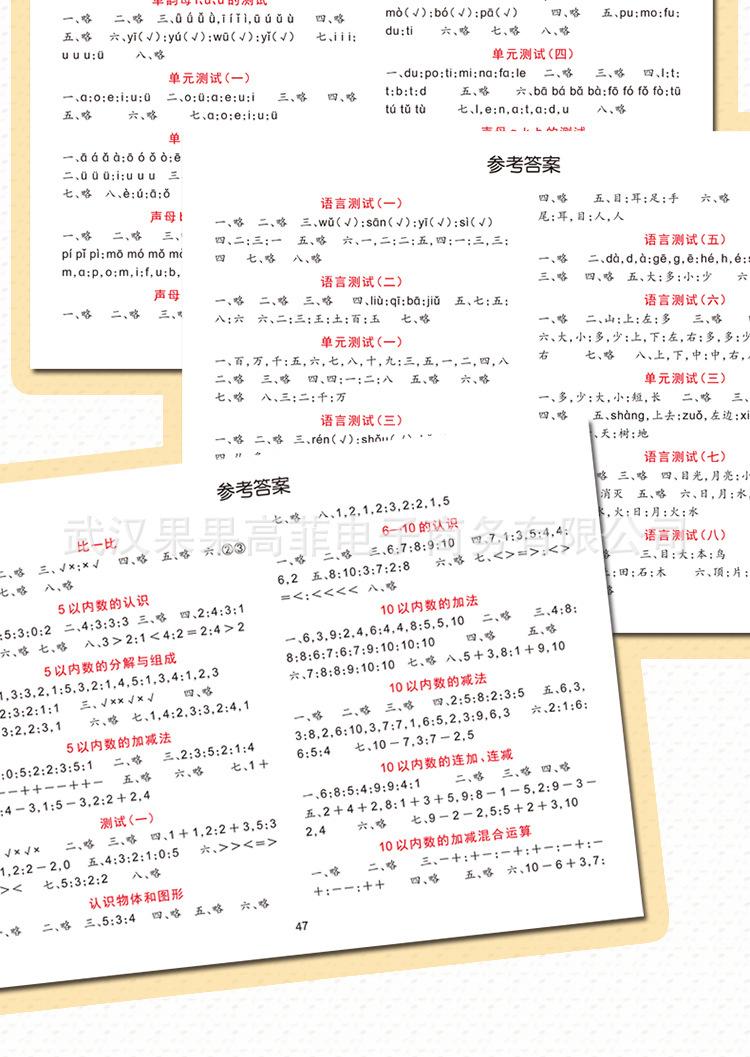 一、略 二、略 三、ū ú ǔ ù, ī í ǐ ì, ǖ ǘ ǚ ǜ 四、略
五、略 六、yī(√);yú(√);wū(√);yǐ(√) 七、i i i;
u u u;ü 八、略
单元测试(一)
一、a;o;e;i;u;ü 二、o;ü;a;e;u;i 三、略 四、略
五、略 六、略 七、a;o;e;i;u;ü
单
一、ā á ǎ à;ō ó ǒ ò;ē
二、ü ü ü;i;u u u 三
七、略 八、è;ú;ā;ǒ
声母
一、略 二、略 三、
pí pǐ pì;mō mó mǒ m
m,a;p,o;m,i;f,u;b,
声母
一、略 二、略 三、略
mò(√);bó(√);pā(√) 四、略 五、pu;mo;fu;
du;ti 六、略 七、略 八、略
单元测试(四)
一、du;po;ti;mi;na;fa;le 二、略 三、略 四、l;t;
t;b;t;d 五、略 六、bā bá bǎ bà;fō fó fǒ fò;tū
tú tǔ tù 七、l,e;n,a;t,a;d,u 八、略
参考答案
语言测试(一)
一、略 二、略 三、wǔ(√);sān(√);yī(√);sì(√)
四、二;三;一 五、略 六、一,二;二,五,四;一,三,三;
四 七、略 八、略
语言测试(二)
一、略 二、略 三、略 四、liù;qī;bā;jiǔ 五、七;五;
八;六 六、二;三;王;土;百;玉 七、略
单元测试(一)
一、百,万,千;五,六,七,八,十,九;三,五,一,二,四,八
二、略 三、略 四、四;一;二;八 五、略 六、略
七、略 八、三;二;千;万
语言测试(三)
一、略 二、略 三、rén(√);shǒu
四、略 五、目;耳;足;手 六、略
尾;耳,目;人,人
语言测试(五)
一、略 二、dà,d,à;gē,g,ē;hé,h,é;
三、略 四、略 五、大;多;小;少 六
语言测试(六)
一、略 二、山;上;左;多 三、略 四
六、大,小;多,少;上,下;左,右;多,多;少
右 七、略 八、上,下,中;中,右,
单元测试(三)
一、多,少;大,小;短,长 二、略 三、
四、略 五、shàng,上去;zuǒ,左边;xi
天;树;地
语言测试(七)
略 三、略 四、目光,月光;
消灭 五、略 六、日,月;水,
水,火;日;月;火;水
语言测试(八)
三、目;本;鸟
土;田;石;木 六、顶;片;
参考答案
比一比
二、略 三、√×;×√ 四、略 五、略 六、②③
七、略 八、略
5以内数的认识
;5;3;0;2 二、4;3;3;3 三、略 四、2;4;3;1
六、略 七、略 八、3>2;1<4;2=2;4>2
5以内数的分解与组成
1,3;3,2,1;5,3,2;1,4,5;1,3;4,1,2,3
2;3;2;1;1 三、√××√×√ 四、略
3;2,2;3,1 六、略 七、1,4;2,3;3,2;4,1
5以内数的加减法
;0;5;2;2;3;5;1 二、略 三、2;3;5;2;1;4
六、略 七、1+
;4-3,1;5-3,2;2+2,4
测试(一)
√×√× 二、略 三、略 四、1+1,2;2+3,5;3
1,2;2-2,0 五、4;3;2;1;0;5 六、>>><=
>< 七、5;3;2;2 八、略
认识物体和图形
、略 二、略 三、5;3;4 四、略 五、略 六、略
七、略 八、1,2,1,2;3,2;2,1,5
6—10的认识
一、略 二、略 三、6;7;8;9;10 四、7,1;3,5;4,4;
6,2 五、8;10;3;7;2;8 六、略 七、<;>=>;<>
=<;<<<< 八、略
10以内数的加法
一、6,3,9;2,4,6;4,4,8;5,5,10 二、略 三、4;8;
8;8;6;7;6;7;9;10;10;10 四、略 五、略
六、7;8;8;9;10;10 七、略 八、5+3,8;1+9,10
10以内数的减法
一、略 二、略 三、略 四、2;5;8;2;3;5 五、6,3,
3;8,2,6;10,3,7;7,1,6;5,2,3;9,6,3 六、2;1;6;
6;5;4 七、10-7,3;7-2,5
10以内数的连加、连减
一、6;8;5;4;9;9;4;1 二、略 三、略 四、略
五、2+4+2,8;1+3+5,9;8-1-5,2;9-3-
2,4 六、略 七、9-2-2,5;5+2+3,10
10以内数的加减混合运算
一、略 二、略 三、-+;+-;-+;+-;-+;-
+;--;++ 四、略 五、略 六、10-6+3,7;
47
武汉果果高菲电子商务有限公司